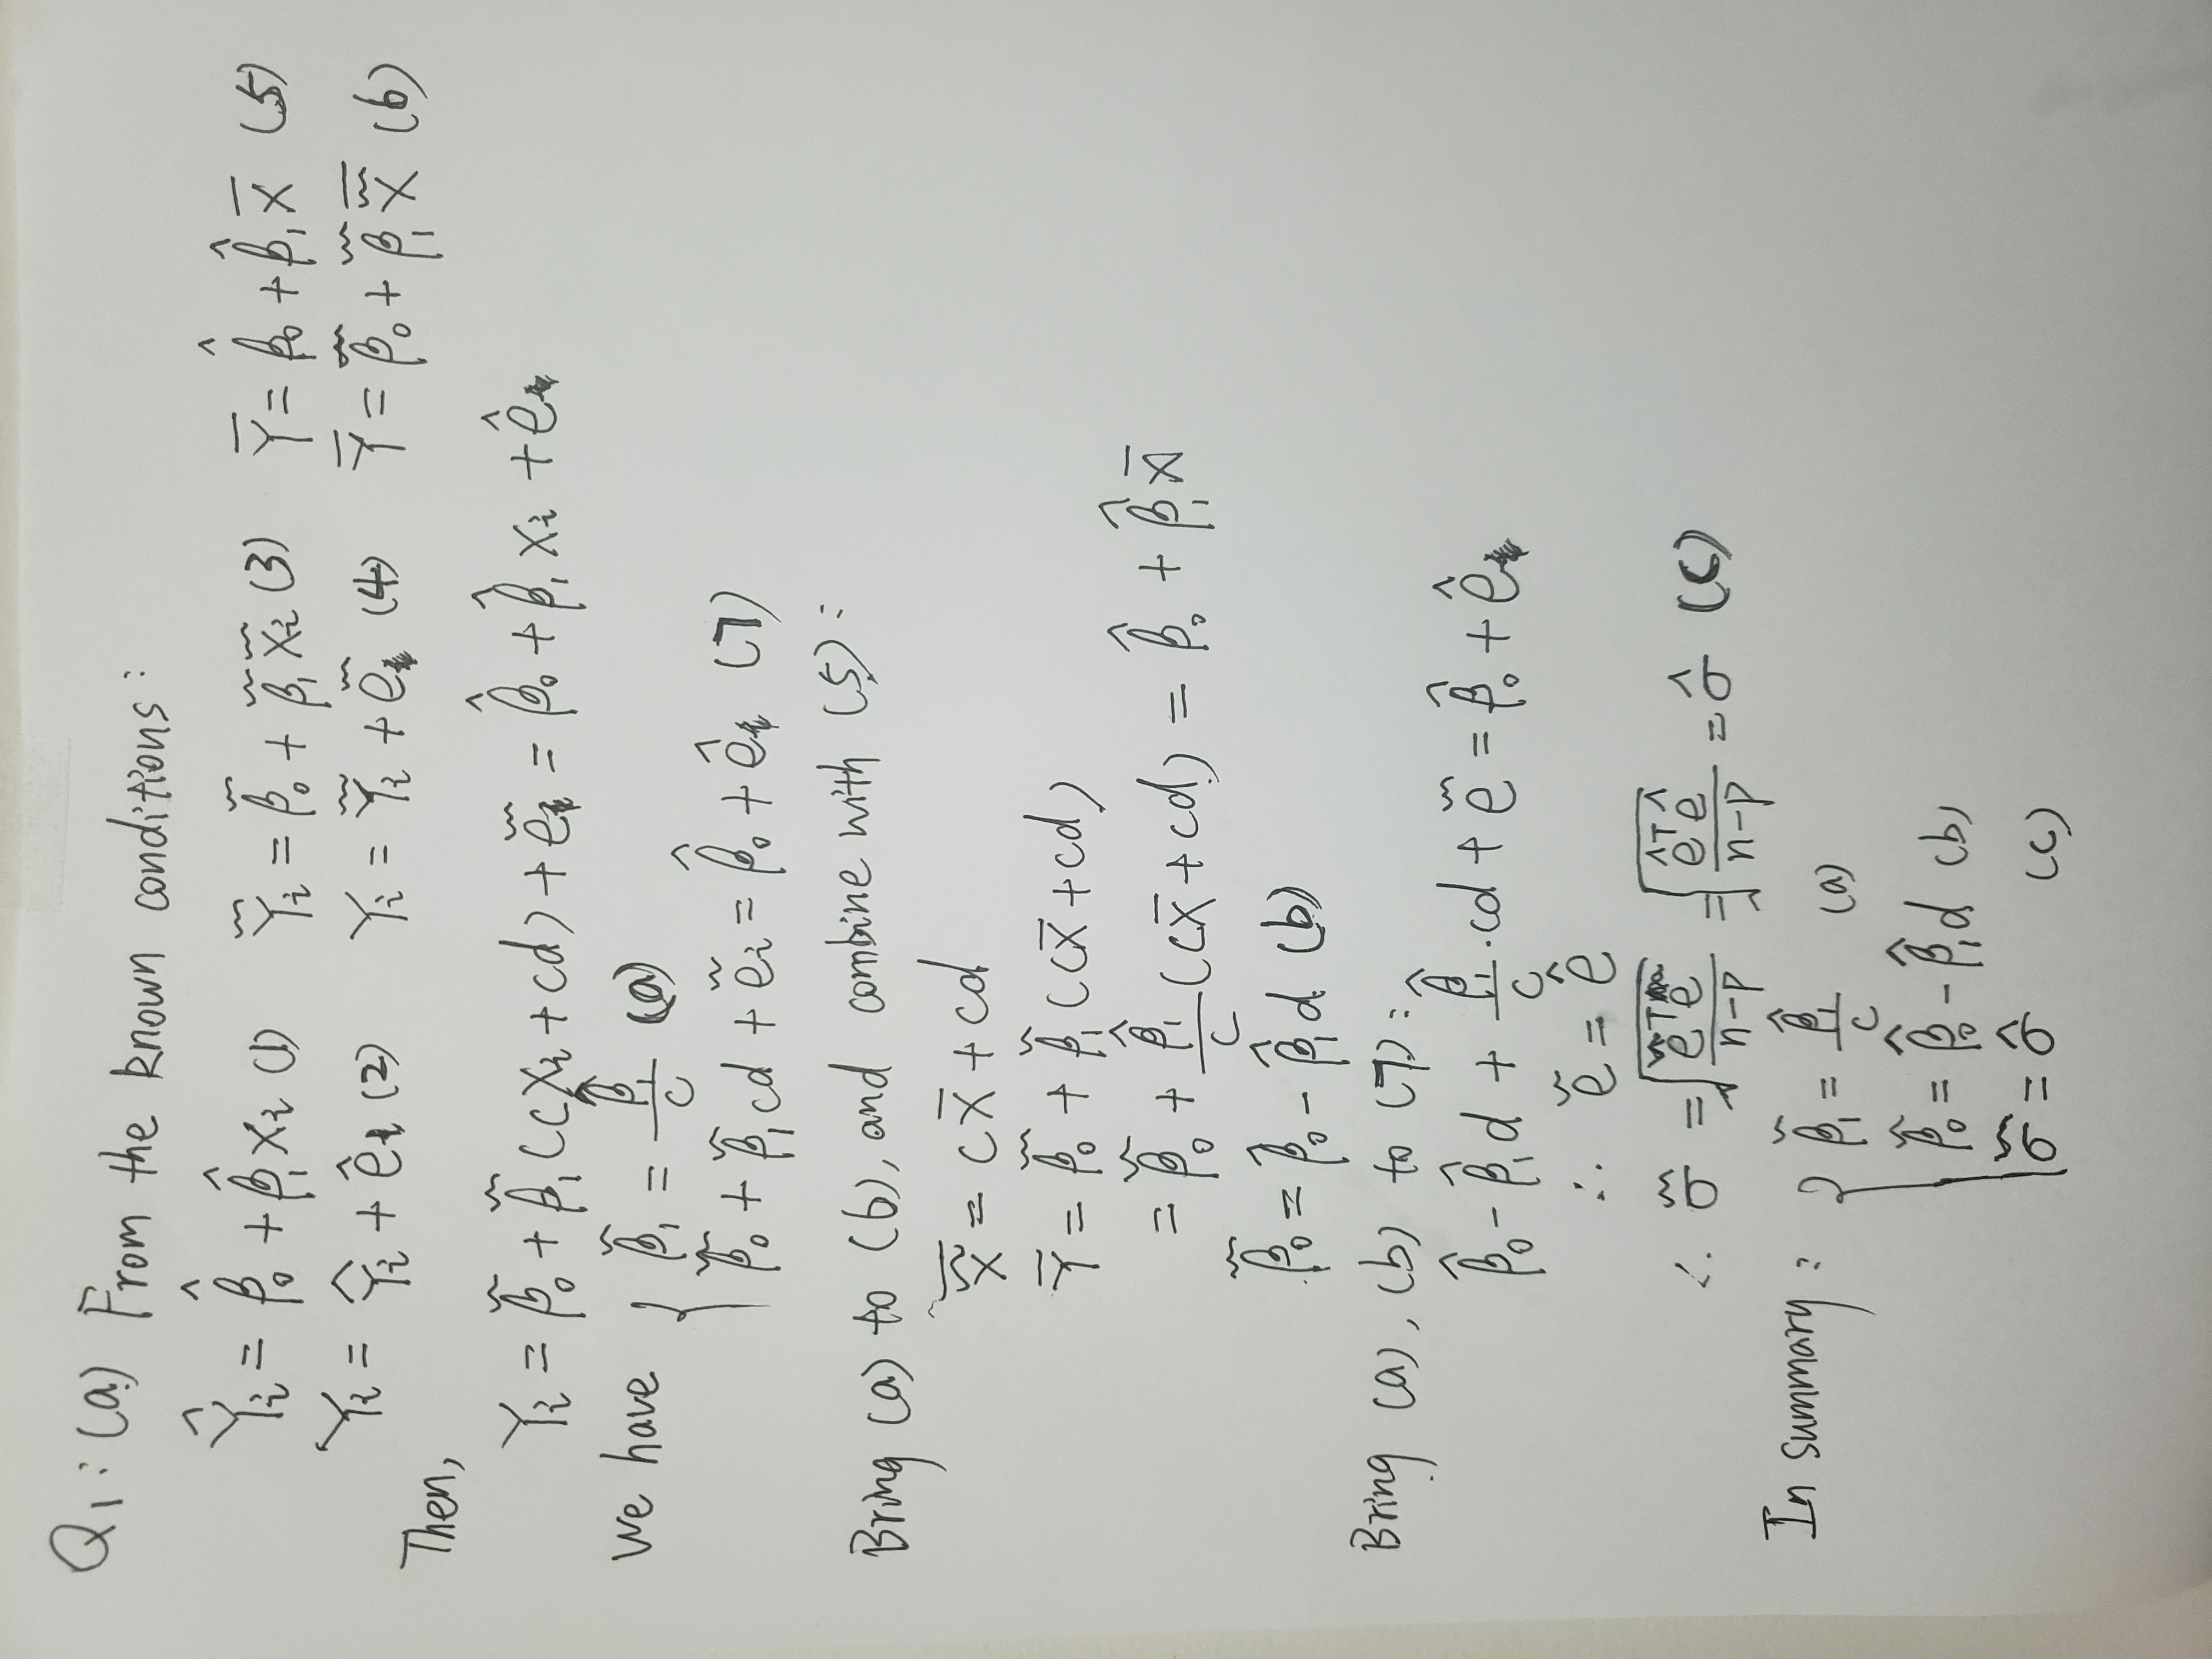 Q1: (a) From the known conditions:
Ŷᵢ = β̂₀ + β̂₁Xᵢ (1)   Ỹᵢ = β̃₀ + β̃₁X̃ᵢ (3)   Ȳ = β̂₀ + β̂₁X̄ (5)
Yᵢ = Ŷᵢ + ê (2)   Yᵢ = Ỹᵢ + ẽ (4)   Ȳ = β̃₀ + β̃₁X̃̄ (6)
Then,
Yᵢ = β̃₀ + β̃₁(cXᵢ + cd) + ẽ = β̂₀ + β̂₁Xᵢ + ê
We have { β̃₁ = β̂₁/c (a)
β̃₀ + β̃₁cd + ẽᵢ = β̂₀ + ê (7)
Bring (a) to (6), and combine with (5):
X̃̄ = cX̄ + cd
Ȳ = β̃₀ + β̃₁(cX̄ + cd)
= β̃₀ + β̂₁/c (cX̄ + cd) = β̂₀ + β̂₁X̄
β̃₀ = β̂₀ - β̂₁d (b)
Bring (a), (b) to (7):
β̂₀ - β̂₁d + β̂₁/c · cd + ẽ = β̂₀ + ê
∴ ẽ = ê
∴ σ̃ = √(ẽᵀẽ/(n-p)) = √(êᵀê/(n-p)) = σ̂ (c)
In summary: { β̃₁ = β̂₁/c (a)
β̃₀ = β̂₀ - β̂₁d (b)
σ̃ = σ̂ (c)